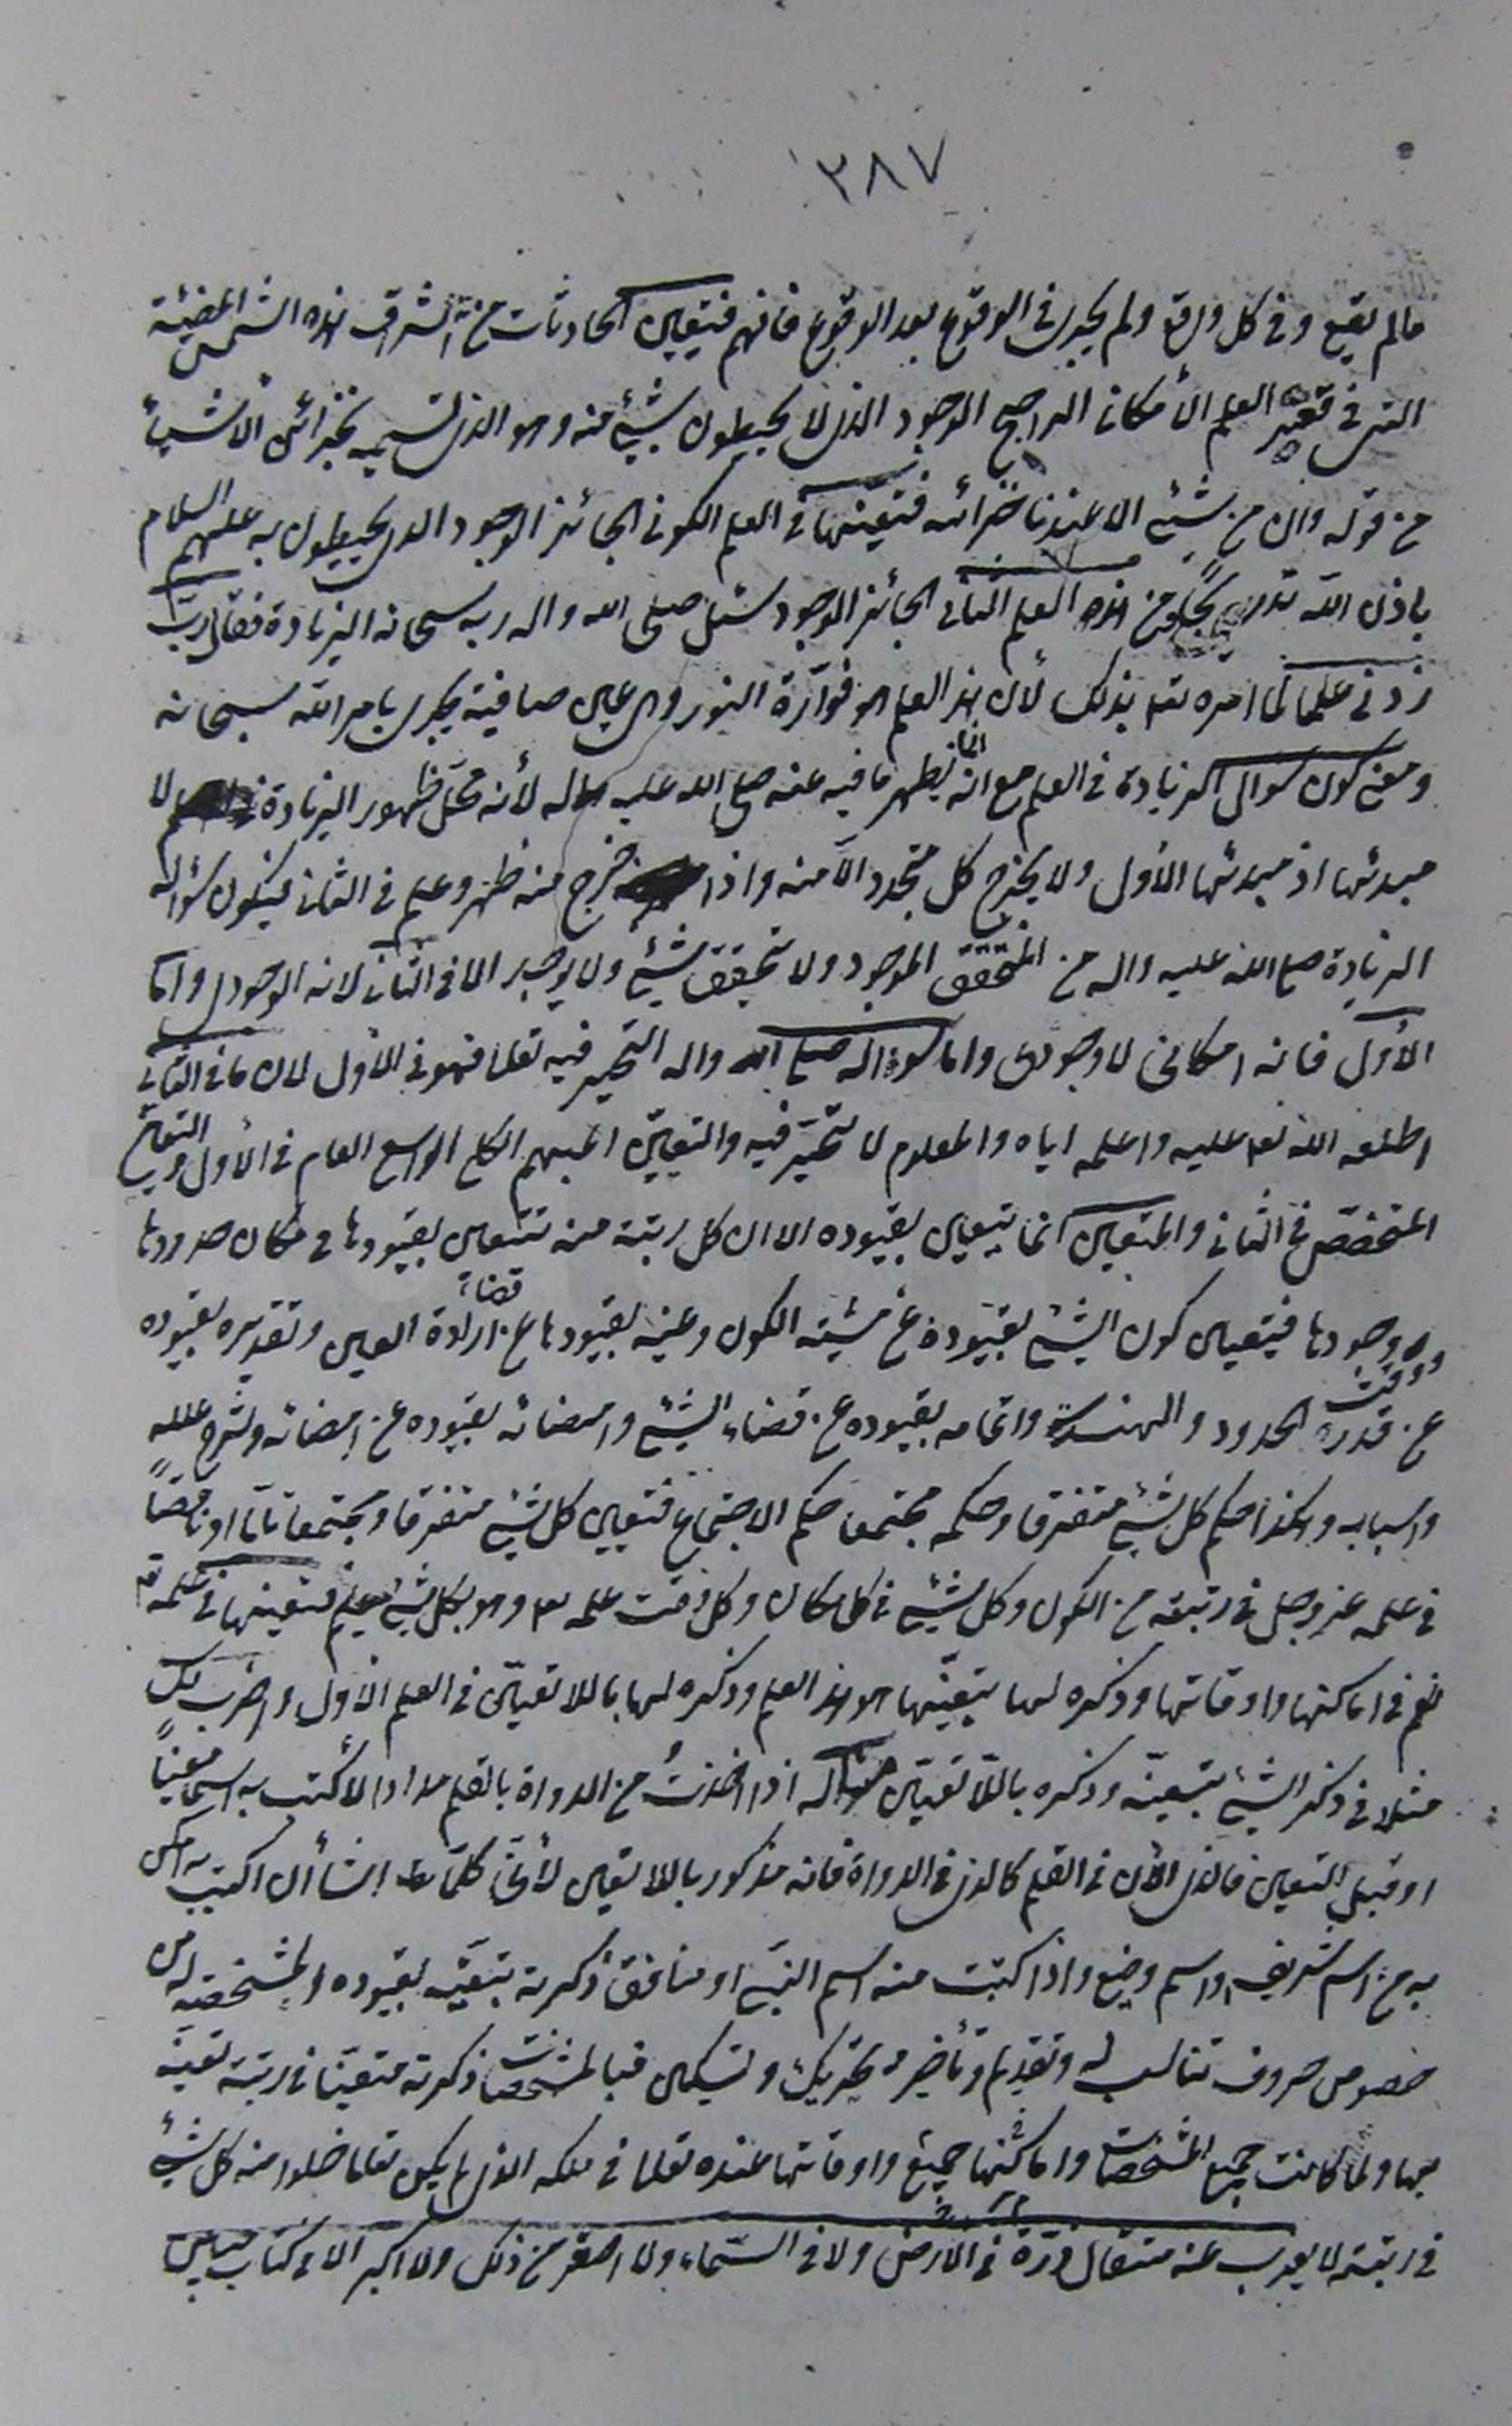 ٣٨٧
مالم يقع وفى كل واقع ولم يجر فى الوقوع بعد الوقوع فافهم فتعين الحادثات من اشراق هذه الشمس المضيئة
التى فى العلم الأمكانى الراجح الوجود الذى لا يحيطون بشيئ منه وهو الذى نسميه بخزائن الأشياء
من قوله وان من شيئ الا عندنا خزائنه فتعينها فى العلم الكونى الجائز الوجود الذى يحيطون به عليهم السلام
باذن الله من هذا العلم الثانى الجائز الوجود سئل صلى الله واله ربه سبحانه الزيادة فقال رب
زدنى علما لما امره تعالى بذلك لأن هذا العلم هو فوّارة النور وهى عين صافية تجرى بامر الله سبحانه
ومعنى كون سؤال الزيادة فى العلم مع انه انما يظهر ما فيه عنه صلى الله عليه واله لأنه محل ظهور الزيادة لا
مبدئها اذ مبدئها الأول ولا يخرج كل متجدد الا منه واذا خرج منه ظهر وعلم فى الثانى فيكون سؤاله
الزيادة صلى الله عليه واله من المتحقق الموجود ولا تحقق شيئ ولا يوجد الا فى الثانى لانه الوجودى واما
الأول فانه امكانى لا وجودى واما سؤاله صلى الله واله التحير فيه تعالى فهو فى الأول لان ما فى الثانى
اطلعه الله تعالى عليه واعلمه اياه والمعلوم لا تحيّر فيه والتعين المبهم الكلى الواسع العام فى الأول والتعين
المتخصّص فى الثانى والمتعين انما يتعين بقيوده الا ان كل رتبة منه تتعين بقيودها فى مكان حدودها
ووقت وجودها فيتعين كون الشيئ بقيوده عن مشيئة الكون وعينه بقيودها عن ارادة العين وتقديره بقيوده
عن قدر الحدود والهندسة واتمامه بقيوده عن قضاء الشيئ وامضائه بقيوده عن امضائه وشرح علله
واسبابه وهكذا حكم كل شيئ متفرقا وحكمه مجتمعا حكم الاجتماع فتعين كل شيئ متفرقا ومجتمعا تامّا او ناقصاً
فى علمه عز وجل فى رتبته من الكون وكل شيئ فى كل مكان وكل وقت علمه وهو بكل شيئ عليم فتعينها فى علمه
لهم فى اماكنها واوقاتها وذكره لها بتعيّنها هو هذا العلم وذكره لها باللاتعيّن فى العلم الأول واضرب لك
مثلا فى ذكر الشيئ بتعينه وذكره باللاتعيّن اذا اخذتُ من الدواة بالقلم مدادا لأكتب به اسما معيناً
او قبل التعين فالذى الأن فى القلم كالذى فى الدواة فانه مذكور باللاتعين لأنى كلما اشأ ان اكتب به امكن
به من اسم شريف واسم وضيع واذا كتبت منه اسم النبى او منافق ذكرته بتعيّنه بقيوده المشخصة له من
خصوص حروف تناسب له وتقديم وتأخير وتحريك وتسكين فبالمشخصات ذكرته متعيّنا فى رتبة تعينه
بها ولما كانت جميع المشخصات واماكنها جميع واوقاتها عنده تعالى فى ملكه الذى لم يكن تعالى خلوا منه كل شيئ
فى رتبته لا يعزب عنه مثقال ذرة فى الأرض ولا فى السّماء ولا اصغر من ذلك ولا اكبر الا فى كتاب مبين